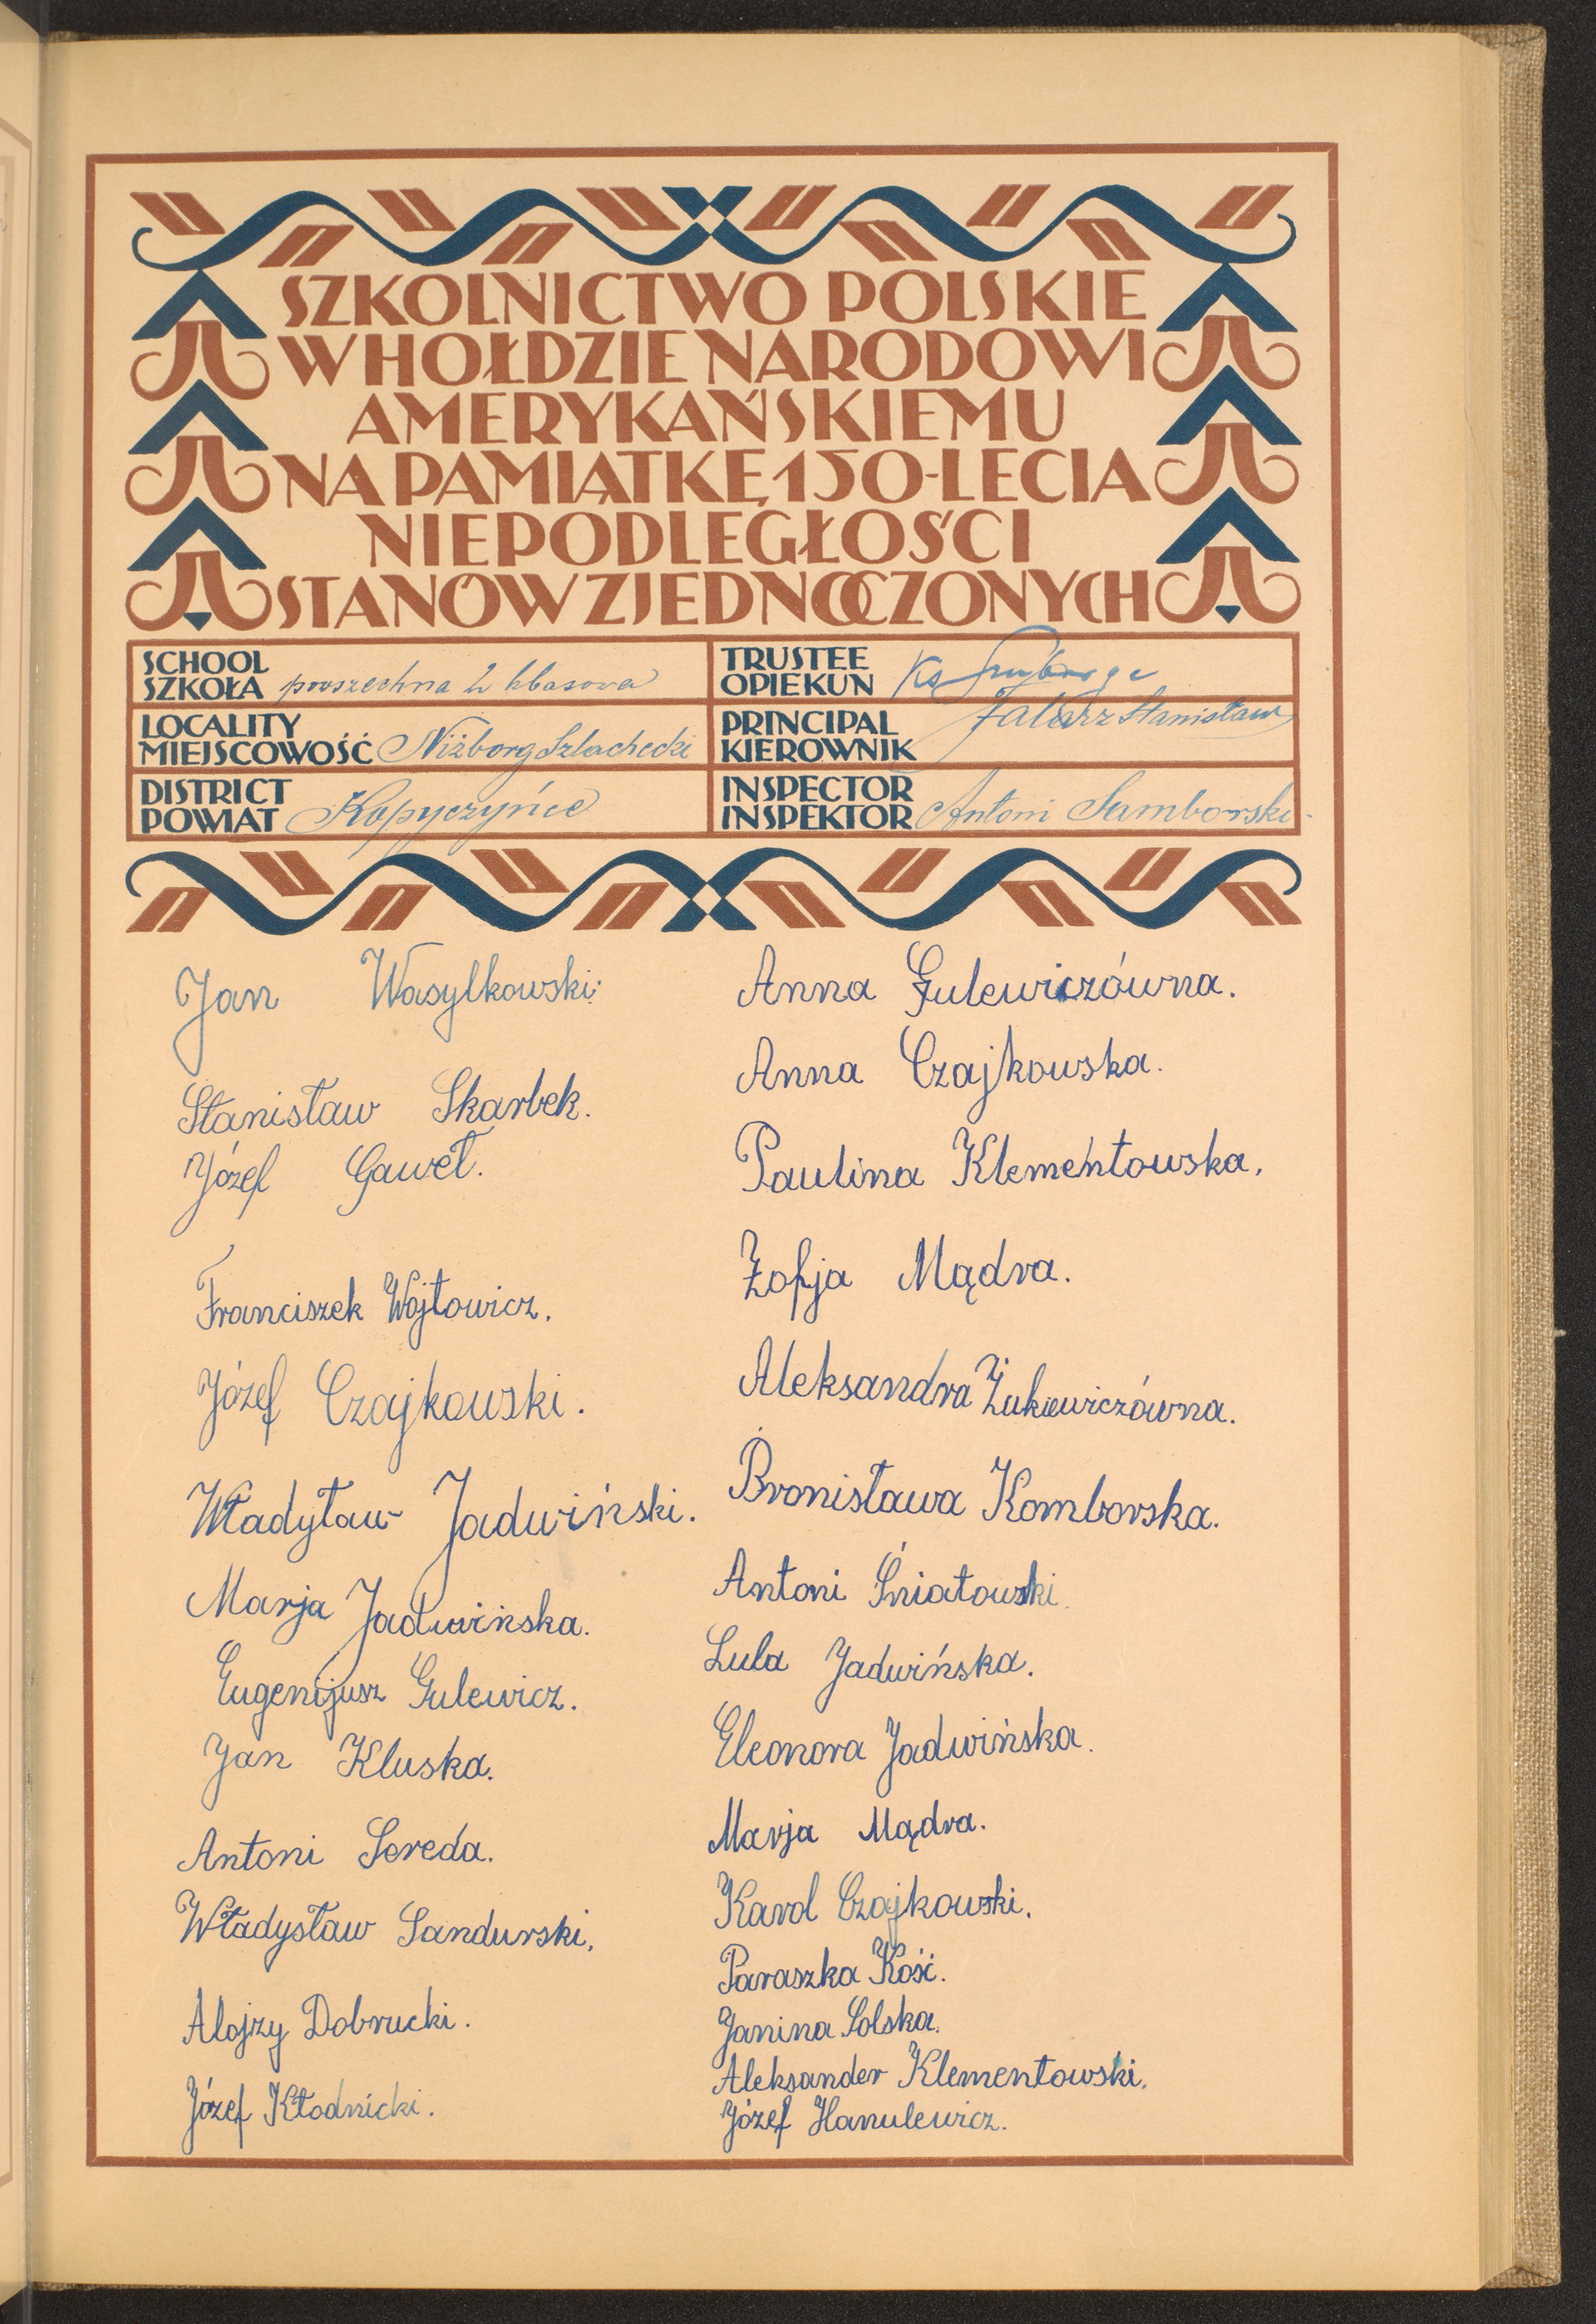 SZKOLNICTWO POLSKIE
W HOŁDZIE NARODOWI
AMERYKAŃSKIEMU
NA PAMIĄTKĘ 150-LECIA
NIEPODLEGŁOŚCI
STANÓW ZJEDNOCZONYCH
SCHOOL
SZKOŁA powszechna 2 klasowa
LOCALITY
MIEJSCOWOŚĆ Niżborg Szlachecki
DISTRICT
POWIAT Kopyczyńce
TRUSTEE
OPIEKUN Ks
PRINCIPAL
KIEROWNIK Stanisław
INSPECTOR
INSPEKTOR Antoni Samborski
Jan Wasylkowski
Stanisław Skarbek.
Józef Gaweł.
Franciszek Wojtowicz.
Józef Czajkowski.
Władyław Jadwiński.
Marja Jadwińska.
Eugenijusz Gulewicz.
Jan Kluska.
Antoni Sereda.
Władysław Sandurski.
Alojzy Dobrucki.
Józef Kłodnicki.
Anna Gulewiczówna.
Anna Czajkowska.
Paulina Klementowska.
Zofja Mądra.
Aleksandra Żukiewiczówna.
Bronisława Komborska.
Antoni Śniatowski.
Lula Jadwińska.
Eleonora Jadwińska.
Marja Mądra.
Karol Czajkowski.
Paraszka Kość.
Janina Solska.
Aleksander Klementowski.
Józef Hanulewicz.